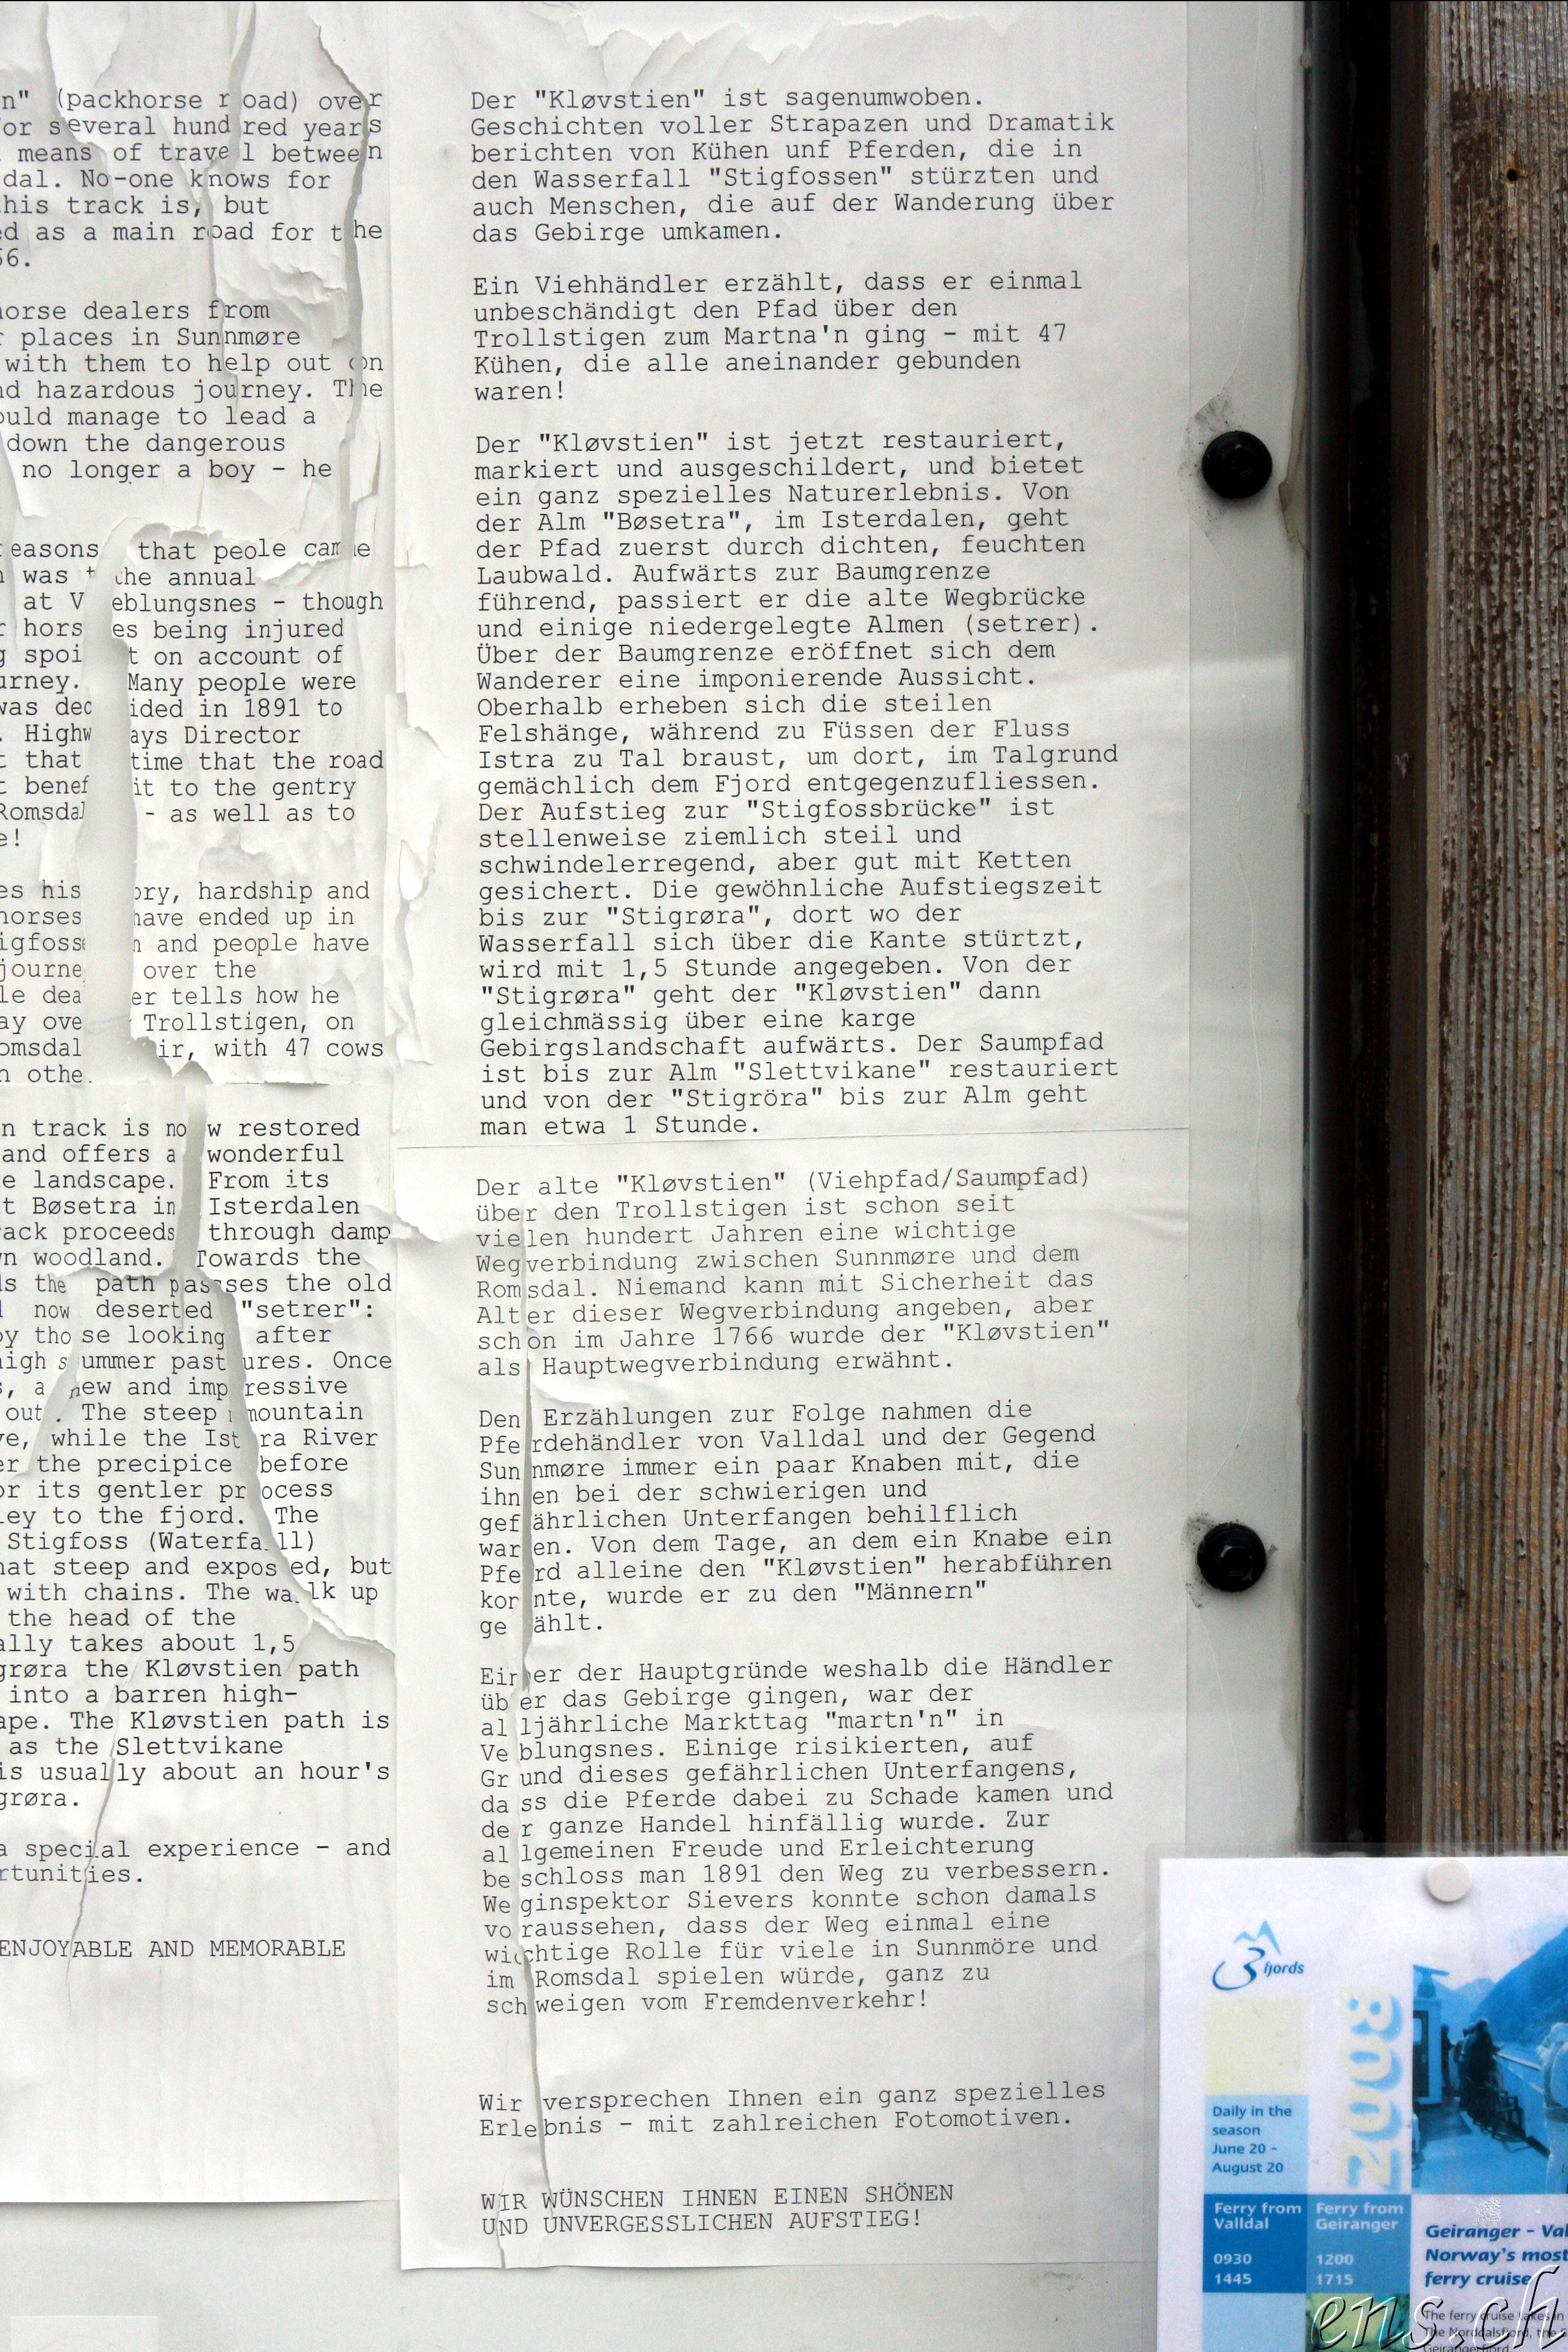 n" (packhorse road) over
or several hundred years
means of travel between
dal. No-one knows for
his track is, but
ed as a main road for the
66.
horse dealers from
r places in Sunnmøre
with them to help out on
nd hazardous journey. The
ould manage to lead a
down the dangerous
no longer a boy - he
reasons that peole came
n was the annual
at Veblungsnes - though
r horses being injured
g spoilt on account of
urney. Many people were
was decided in 1891 to
. Highways Director
t that time that the road
t benefit to the gentry
Romsdal - as well as to
e!
es history, hardship and
horses have ended up in
igfossen and people have
journey over the
le dealer tells how he
ay over Trollstigen, on
omsdal fair, with 47 cows
h othe.
n track is now restored
and offers a wonderful
e landscape. From its
t Bøsetra in Isterdalen
rack proceeds through damp
wn woodland. Towards the
ds the path passes the old
d now deserted "setrer":
by those looking after
high summer pastures. Once
s, a new and impressive
out. The steep mountain
ve, while the Istra River
er the precipice before
or its gentler process
ley to the fjord. The
Stigfoss (Waterfall)
hat steep and exposed, but
with chains. The walk up
the head of the
ally takes about 1,5
grøra the Kløvstien path
into a barren high-
ape. The Kløvstien path is
as the Slettvikane
is usually about an hour's
grøra.
a special experience - and
rtunities.
ENJOYABLE AND MEMORABLE
Der "Kløvstien" ist sagenumwoben.
Geschichten voller Strapazen und Dramatik
berichten von Kühen unf Pferden, die in
den Wasserfall "Stigfossen" stürzten und
auch Menschen, die auf der Wanderung über
das Gebirge umkamen.
Ein Viehhändler erzählt, dass er einmal
unbeschändigt den Pfad über den
Trollstigen zum Martna'n ging - mit 47
Kühen, die alle aneinander gebunden
waren!
Der "Kløvstien" ist jetzt restauriert,
markiert und ausgeschildert, und bietet
ein ganz spezielles Naturerlebnis. Von
der Alm "Bøsetra", im Isterdalen, geht
der Pfad zuerst durch dichten, feuchten
Laubwald. Aufwärts zur Baumgrenze
führend, passiert er die alte Wegbrücke
und einige niedergelegte Almen (setrer).
Über der Baumgrenze eröffnet sich dem
Wanderer eine imponierende Aussicht.
Oberhalb erheben sich die steilen
Felshänge, während zu Füssen der Fluss
Istra zu Tal braust, um dort, im Talgrund
gemächlich dem Fjord entgegenzufliessen.
Der Aufstieg zur "Stigfossbrücke" ist
stellenweise ziemlich steil und
schwindelerregend, aber gut mit Ketten
gesichert. Die gewöhnliche Aufstiegszeit
bis zur "Stigrøra", dort wo der
Wasserfall sich über die Kante stürtzt,
wird mit 1,5 Stunde angegeben. Von der
"Stigrøra" geht der "Kløvstien" dann
gleichmässig über eine karge
Gebirgslandschaft aufwärts. Der Saumpfad
ist bis zur Alm "Slettvikane" restauriert
und von der "Stigröra" bis zur Alm geht
man etwa 1 Stunde.
Der alte "Kløvstien" (Viehpfad/Saumpfad)
über den Trollstigen ist schon seit
vielen hundert Jahren eine wichtige
Wegverbindung zwischen Sunnmøre und dem
Romsdal. Niemand kann mit Sicherheit das
Alter dieser Wegverbindung angeben, aber
schon im Jahre 1766 wurde der "Kløvstien"
als Hauptwegverbindung erwähnt.
Den Erzählungen zur Folge nahmen die
Pferdehändler von Valldal und der Gegend
Sunnmøre immer ein paar Knaben mit, die
ihnen bei der schwierigen und
gefährlichen Unterfangen behilflich
waren. Von dem Tage, an dem ein Knabe ein
Pferd alleine den "Kløvstien" herabführen
konnte, wurde er zu den "Männern"
gezählt.
Einer der Hauptgründe weshalb die Händler
über das Gebirge gingen, war der
alljährliche Markttag "martn'n" in
Veblungsnes. Einige risikierten, auf
Grund dieses gefährlichen Unterfangens,
dass die Pferde dabei zu Schade kamen und
der ganze Handel hinfällig wurde. Zur
allgemeinen Freude und Erleichterung
beschloss man 1891 den Weg zu verbessern.
Weginspektor Sievers konnte schon damals
voraussehen, dass der Weg einmal eine
wichtige Rolle für viele in Sunnmöre und
im Romsdal spielen würde, ganz zu
schweigen vom Fremdenverkehr!
Wir versprechen Ihnen ein ganz spezielles
Erlebnis - mit zahlreichen Fotomotiven.
WIR WÜNSCHEN IHNEN EINEN SHÖNEN
UND UNVERGESSLICHEN AUFSTIEG!
3 fjords
2008
Daily in the
season
June 20 -
August 20
Ferry from
Valldal
0930
1445
Ferry from
Geiranger
1200
1715
Geiranger - Val
Norway's most
ferry cruise
The ferry cruise takes in
The Norddalsfjord, the
Geirangerfjord
ens.ch